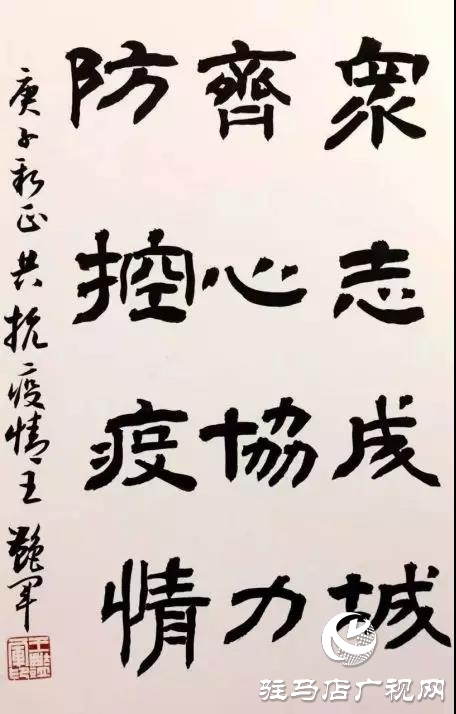 眾志成城
齊心協力
防控疫情
庚子新正共抗疫情王艷軍
驻马店广视网